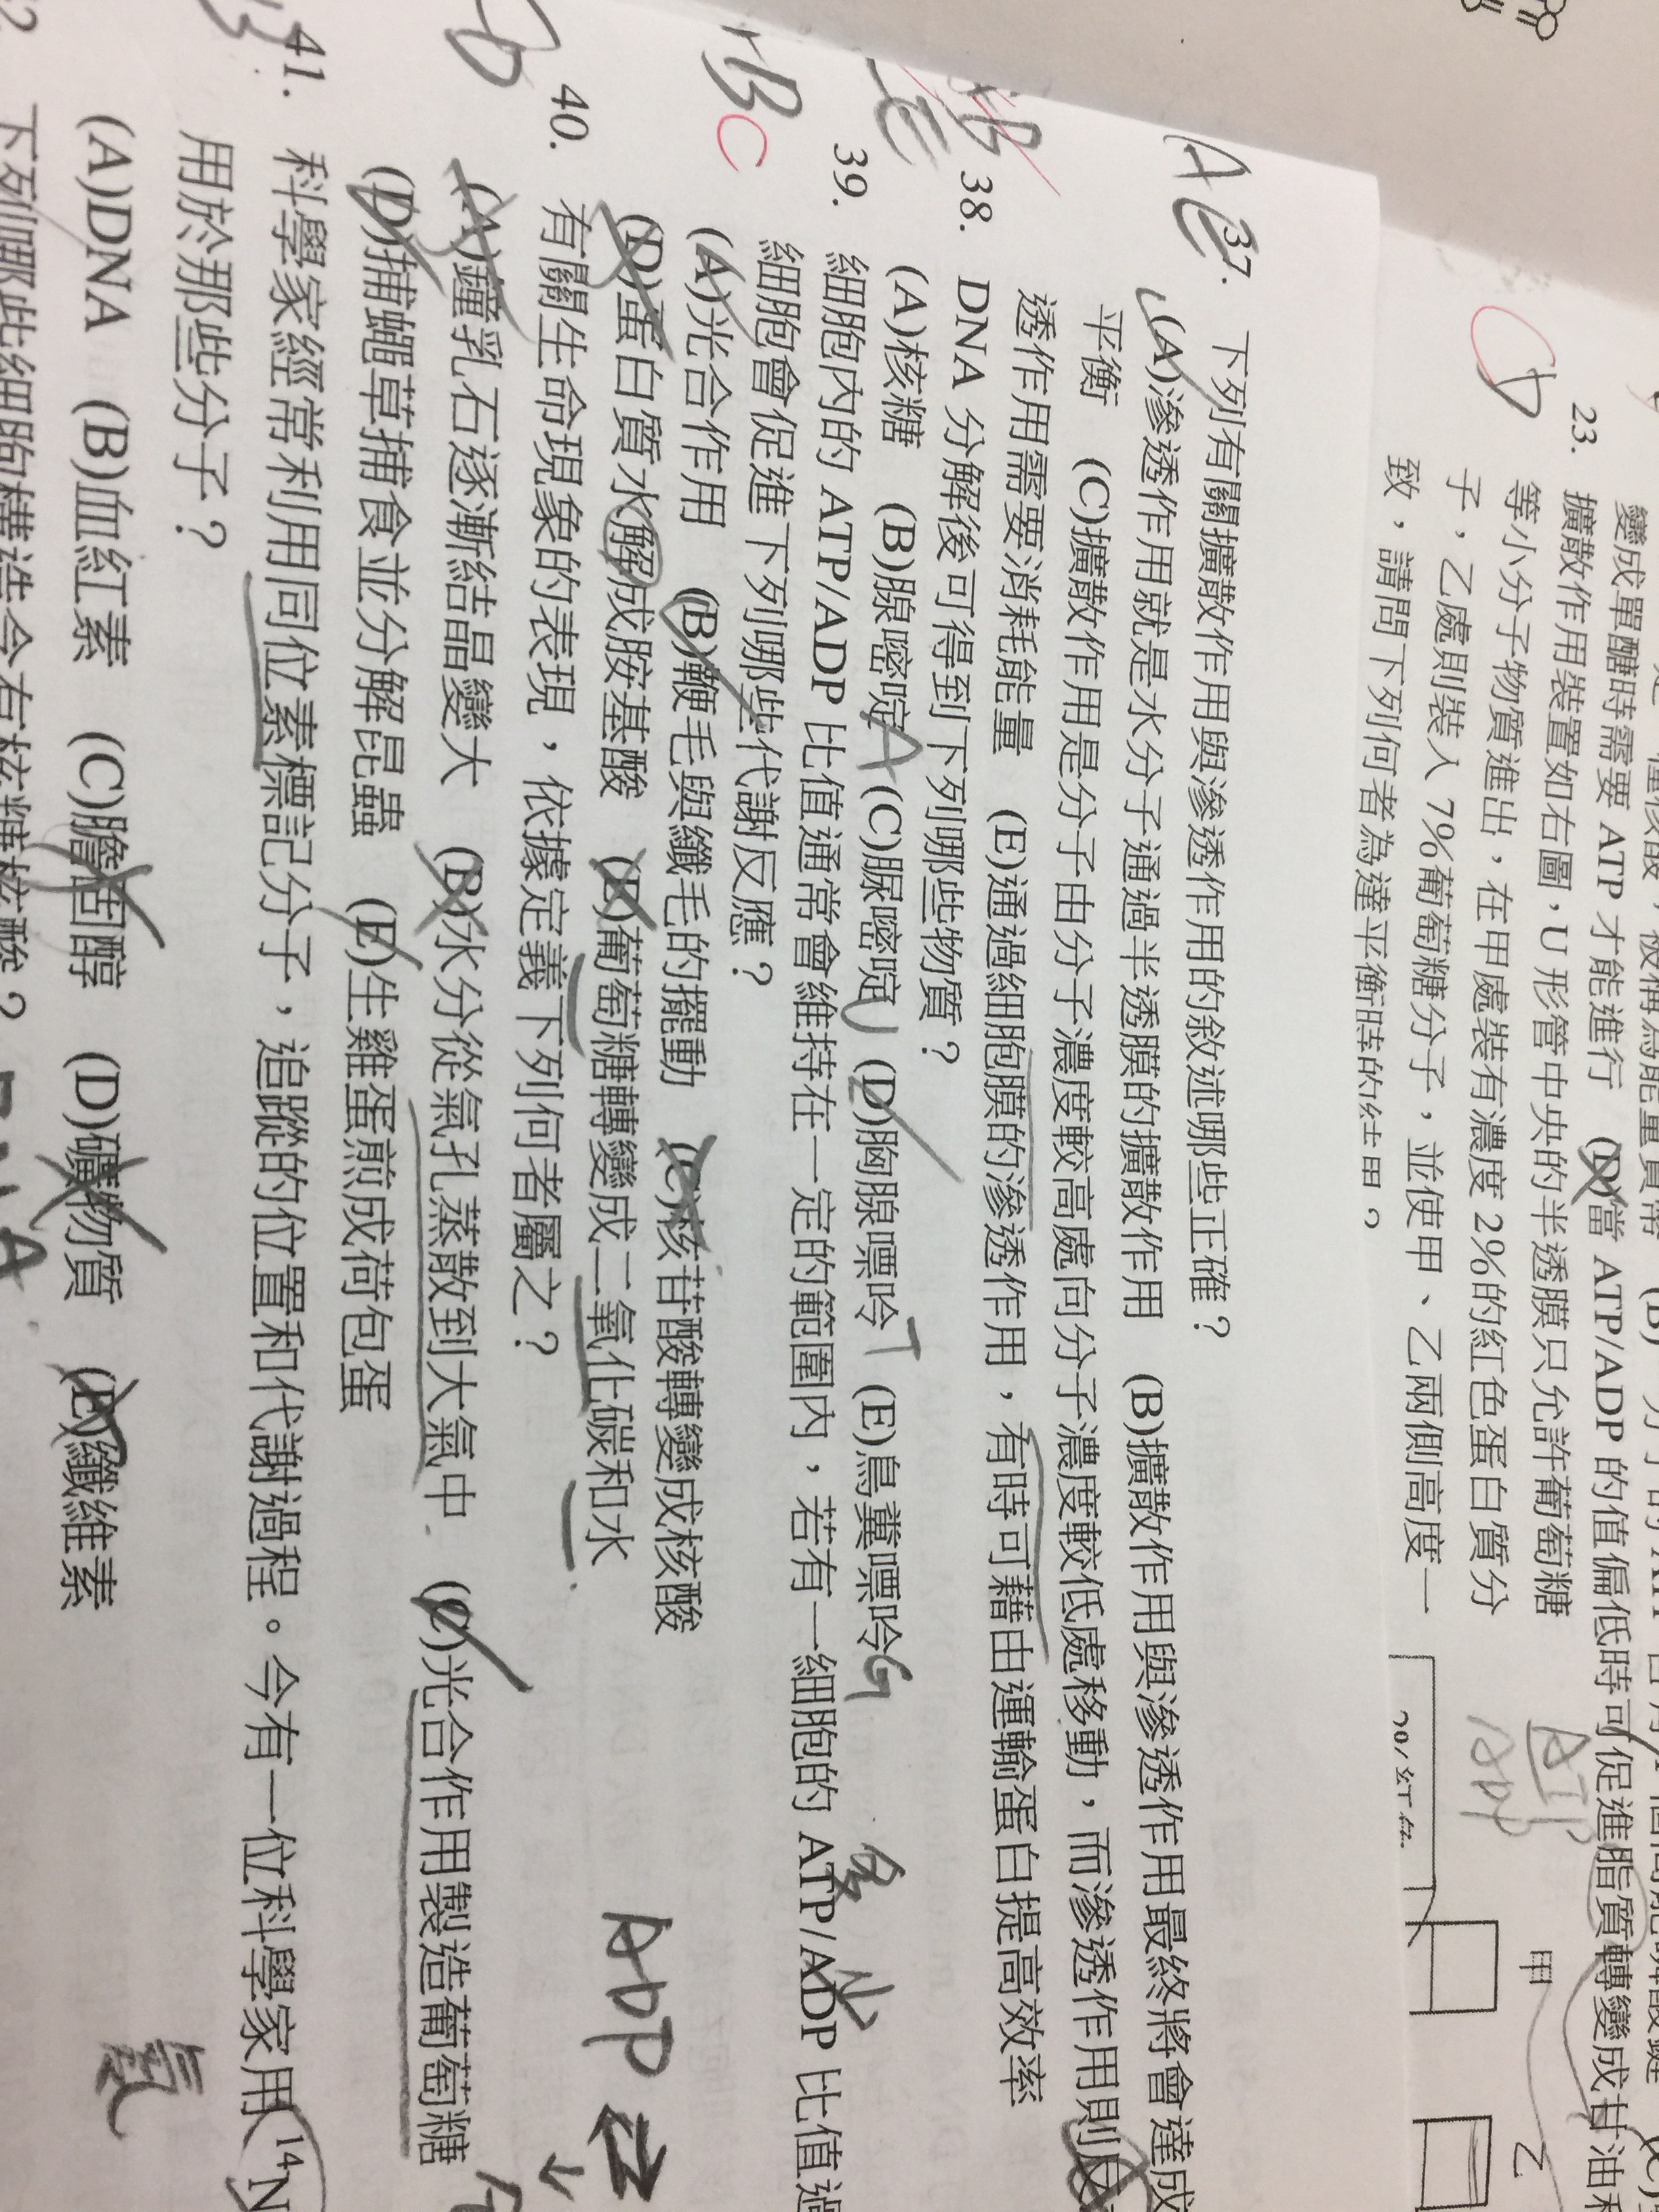 變成單醣時需要 ATP 才能進行 (D)當 ATP/ADP 的值偏低時可促進脂質轉變成甘油
23. 擴散作用裝置如右圖，U 形管中央的半透膜只允許葡萄糖
等小分子物質進出，在甲處裝有濃度 2%的紅色蛋白質分
子，乙處則裝入 7%葡萄糖分子，並使甲、乙兩側高度一
致，請問下列何者為達平衡時的結果？
甲
乙
ATP
ADP
A E
37. 下列有關擴散作用與滲透作用的敘述哪些正確？
(A)滲透作用就是水分子通過半透膜的擴散作用 (B)擴散作用與滲透作用最終將會達成
平衡 (C)擴散作用是分子由分子濃度較高處向分子濃度較低處移動，而滲透作用則反
透作用需要消耗能量 (E)通過細胞膜的滲透作用，有時可藉由運輸蛋白提高效率
38. DNA 分解後可得到下列哪些物質？
(A)核糖 (B)腺嘧啶 A (C)脲嘧啶 U (D)胸腺嘌呤 T (E)鳥糞嘌呤 G
39. 細胞內的 ATP/ADP 比值通常會維持在一定的範圍內，若有一細胞的 ATP/ADP 比值過
細胞會促進下列哪些代謝反應？
BC
(A)光合作用 (B)鞭毛與纖毛的擺動 (C)核苷酸轉變成核酸
(D)蛋白質水解成胺基酸 (E)葡萄糖轉變成二氧化碳和水
ADP
40. 有關生命現象的表現，依據定義下列何者屬之？
(A)鐘乳石逐漸結晶變大 (B)水分從氣孔蒸散到大氣中 (C)光合作用製造葡萄糖
(D)捕蠅草捕食並分解昆蟲 (E)生雞蛋煎成荷包蛋
41. 科學家經常利用同位素標記分子，追蹤的位置和代謝過程。今有一位科學家用 ¹⁴N
用於那些分子？
氮
(A)DNA (B)血紅素 (C)膽固醇 (D)礦物質 (E)纖維素
下列哪些細胞構造含有核糖核酸？